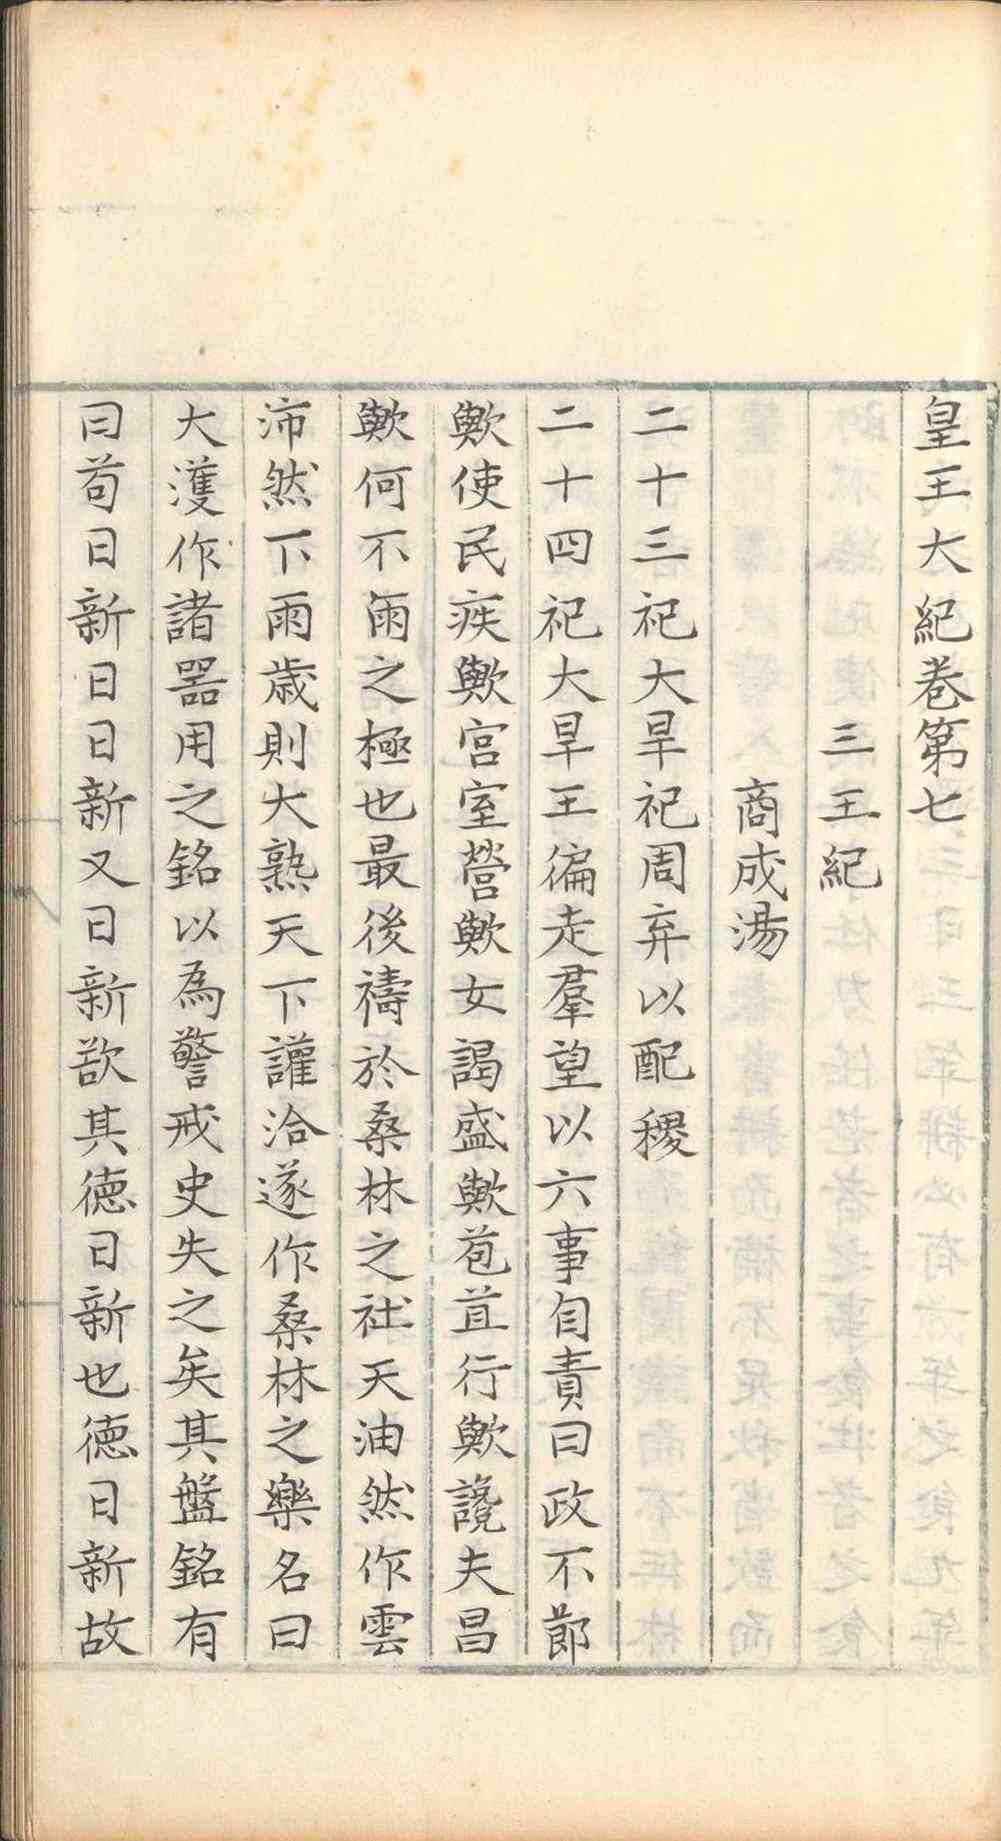 皇王大紀卷第七
三王紀
商成湯
二十三祀大旱祀周弃以配稷
二十四祀大旱王徧走羣望以六事自責曰政不節
歟使民疾歟宫室營歟女謁盛歟苞苴行歟讒夫昌
歟何不雨之極也最後禱於桑林之社天油然作雲
沛然下雨歲則大熟天下讙洽遂作桑林之樂名曰
大濩作諸器用之銘以為警戒史失之矣其盤銘有
曰苟日新日日新又日新欲其德日新也德日新故